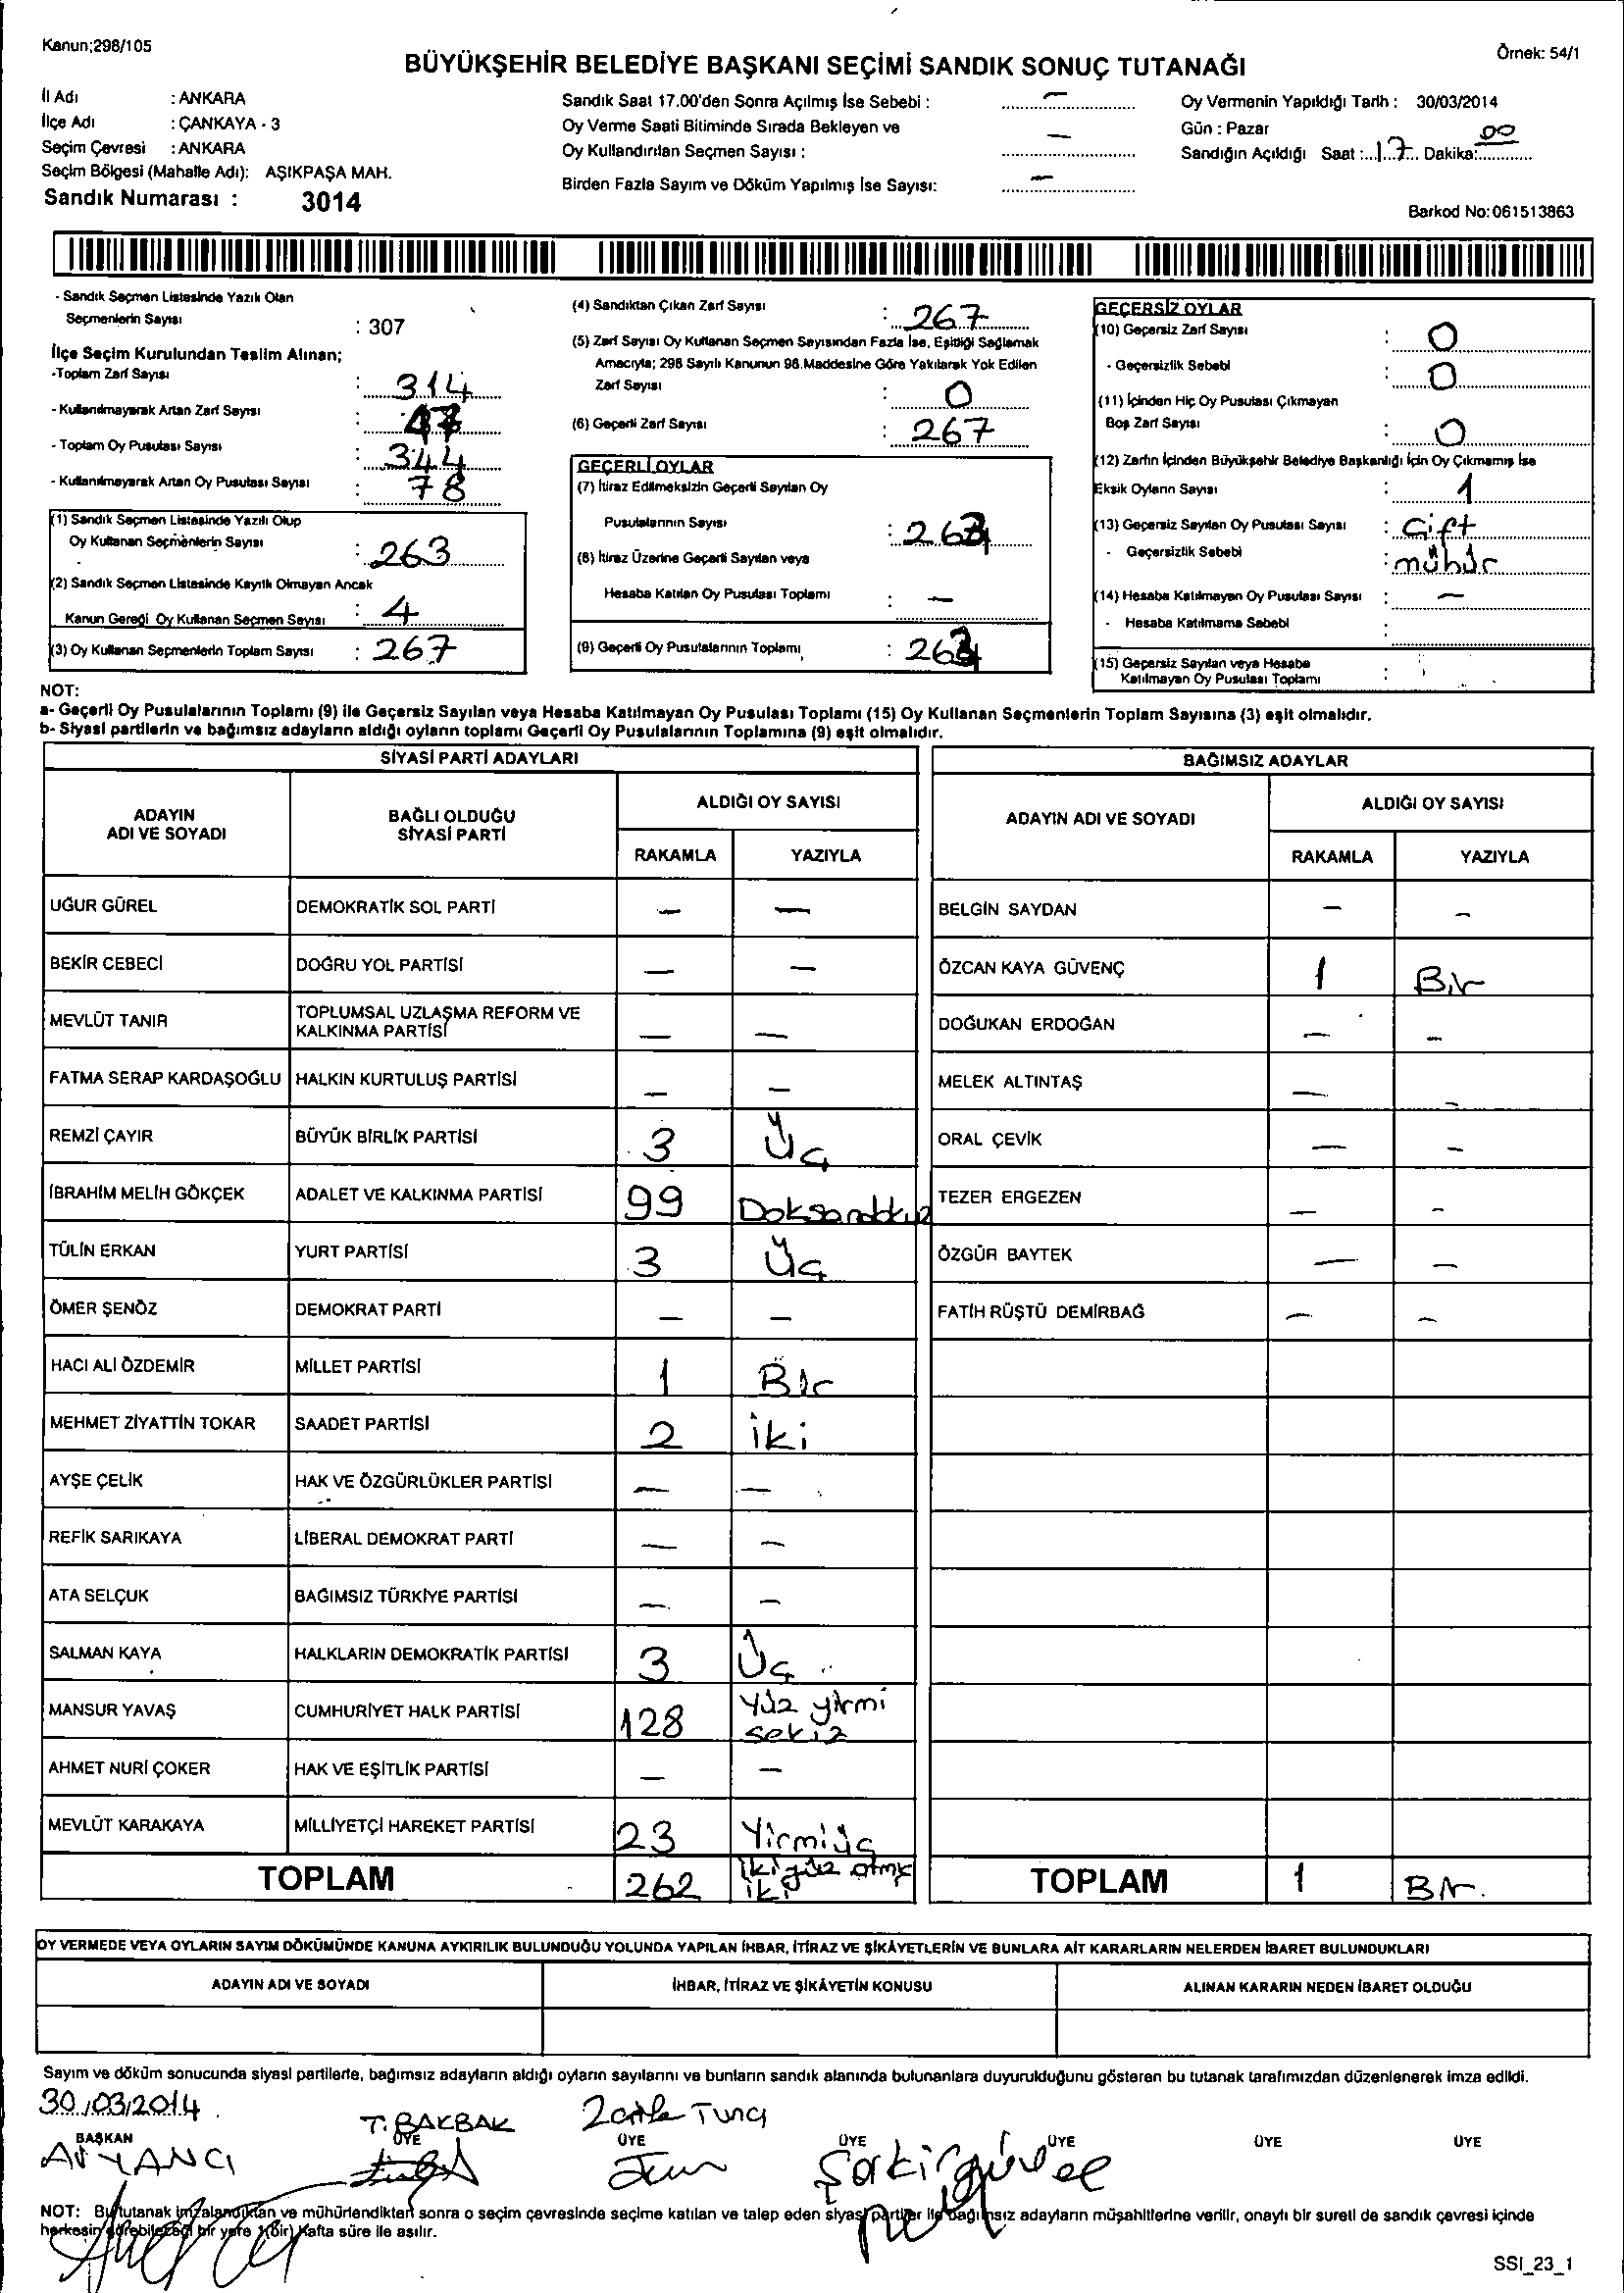 Kanun;298/105
Örnek: 54/1
BÜYÜKŞEHİR BELEDİYE BAŞKANI SEÇİMİ SANDIK SONUÇ TUTANAĞI
İl Adı : ANKARA
İlçe Adı : ÇANKAYA - 3
Seçim Çevresi : ANKARA
Seçim Bölgesi (Mahalle Adı): AŞIKPAŞA MAH.
Sandık Numarası : 3014
Sandık Saat 17.00'den Sonra Açılmış İse Sebebi : –
Oy Verme Saati Bitiminde Sırada Bekleyen ve
Oy Kullandırılan Seçmen Sayısı : –
Birden Fazla Sayım ve Döküm Yapılmış İse Sayısı: –
Oy Vermenin Yapıldığı Tarih : 30/03/2014
Gün : Pazar
Sandığın Açıldığı Saat : 17 Dakika: 00
Barkod No:061513863
- Sandık Seçmen Listesinde Yazılı Olan
Seçmenlerin Sayısı : 307
İlçe Seçim Kurulundan Teslim Alınan;
-Toplam Zarf Sayısı : 314
- Kullanılmayarak Artan Zarf Sayısı : 47
- Toplam Oy Pusulası Sayısı : 344
- Kullanılmayarak Artan Oy Pusulası Sayısı : 78
(1) Sandık Seçmen Listesinde Yazılı Olup
Oy Kullanan Seçmenlerin Sayısı : 263
(2) Sandık Seçmen Listesinde Kayıtlı Olmayan Ancak
Kanun Gereği Oy Kullanan Seçmen Sayısı : 4
(3) Oy Kullanan Seçmenlerin Toplam Sayısı : 267
(4) Sandıktan Çıkan Zarf Sayısı : 267
(5) Zarf Sayısı Oy Kullanan Seçmen Sayısından Fazla İse, Eşitliği Sağlamak
Amacıyla; 298 Sayılı Kanunun 98.Maddesine Göre Yakılarak Yok Edilen
Zarf Sayısı : 0
(6) Geçerli Zarf Sayısı : 267
GEÇERLİ OYLAR
(7) İtiraz Edilmeksizin Geçerli Sayılan Oy
Pusulalarının Sayısı : 263
(8) İtiraz Üzerine Geçerli Sayılan veya
Hesaba Katılan Oy Pusulası Toplamı : –
(9) Geçerli Oy Pusulalarının Toplamı : 263
GEÇERSİZ OYLAR
(10) Geçersiz Zarf Sayısı : 0
- Geçersizlik Sebebi : 0
(11) İçinden Hiç Oy Pusulası Çıkmayan
Boş Zarf Sayısı : 0
(12) Zarfın İçinden Büyükşehir Belediye Başkanlığı İçin Oy Çıkmamış İse
Eksik Oyların Sayısı : 1
(13) Geçersiz Sayılan Oy Pusulası Sayısı : Çift
- Geçersizlik Sebebi : mühür
(14) Hesaba Katılmayan Oy Pusulası Sayısı : –
- Hesaba Katılmama Sebebi :
(15) Geçersiz Sayılan veya Hesaba
Katılmayan Oy Pusulası Toplamı :
NOT:
a- Geçerli Oy Pusulalarının Toplamı (9) ile Geçersiz Sayılan veya Hesaba Katılmayan Oy Pusulası Toplamı (15) Oy Kullanan Seçmenlerin Toplam Sayısına (3) eşit olmalıdır.
b- Siyasi partilerin ve bağımsız adayların aldığı oyların toplamı Geçerli Oy Pusulalarının Toplamına (9) eşit olmalıdır.
SİYASİ PARTİ ADAYLARI
ADAYIN ADI VE SOYADI BAĞLI OLDUĞU SİYASİ PARTİ ALDIĞI OY SAYISI
RAKAMLA YAZIYLA
UĞUR GÜREL DEMOKRATİK SOL PARTİ – –
BEKİR CEBECİ DOĞRU YOL PARTİSİ – –
MEVLÜT TANIR TOPLUMSAL UZLAŞMA REFORM VE KALKINMA PARTİSİ – –
FATMA SERAP KARDAŞOĞLU HALKIN KURTULUŞ PARTİSİ – –
REMZİ ÇAYIR BÜYÜK BİRLİK PARTİSİ 3 Üç
İBRAHİM MELİH GÖKÇEK ADALET VE KALKINMA PARTİSİ 99 Doksandokuz
TÜLİN ERKAN YURT PARTİSİ 3 Üç
ÖMER ŞENÖZ DEMOKRAT PARTİ – –
HACI ALİ ÖZDEMİR MİLLET PARTİSİ 1 Bir
MEHMET ZİYATTİN TOKAR SAADET PARTİSİ 2 iki
AYŞE ÇELİK HAK VE ÖZGÜRLÜKLER PARTİSİ – –
REFİK SARIKAYA LİBERAL DEMOKRAT PARTİ – –
ATA SELÇUK BAĞIMSIZ TÜRKİYE PARTİSİ – –
SALMAN KAYA HALKLARIN DEMOKRATİK PARTİSİ 3 Üç
MANSUR YAVAŞ CUMHURİYET HALK PARTİSİ 128 Yüz yirmi sekiz
AHMET NURİ ÇOKER HAK VE EŞİTLİK PARTİSİ – –
MEVLÜT KARAKAYA MİLLİYETÇİ HAREKET PARTİSİ 23 Yirmiüç
TOPLAM 262 iki yüz atmış iki
BAĞIMSIZ ADAYLAR
ADAYIN ADI VE SOYADI ALDIĞI OY SAYISI
RAKAMLA YAZIYLA
BELGİN SAYDAN – –
ÖZCAN KAYA GÜVENÇ 1 Bir
DOĞUKAN ERDOĞAN – –
MELEK ALTINTAŞ – –
ORAL ÇEVİK – –
TEZER ERGEZEN – –
ÖZGÜR BAYTEK – –
FATİH RÜŞTÜ DEMİRBAĞ – –
TOPLAM 1 Bir
OY VERMEDE VEYA OYLARIN SAYIM DÖKÜMÜNDE KANUNA AYKIRILIK BULUNDUĞU YOLUNDA YAPILAN İHBAR, İTİRAZ VE ŞİKÂYETLERİN VE BUNLARA AİT KARARLARIN NELERDEN İBARET BULUNDUKLARI
ADAYIN ADI VE SOYADI İHBAR, İTİRAZ VE ŞİKÂYETİN KONUSU ALINAN KARARIN NEDEN İBARET OLDUĞU
Sayım ve döküm sonucunda siyasi partilerle, bağımsız adayların aldığı oyların sayılarını ve bunların sandık alanında bulunanlara duyurulduğunu gösteren bu tutanak tarafımızdan düzenlenerek imza edildi.
30/03/2014
T. BAKBAK
BAŞKAN ÜYE ÜYE ÜYE ÜYE ÜYE ÜYE
NOT: Bu tutanak imzalandıktan ve mühürlendikten sonra o seçim çevresinde seçime katılan ve talep eden siyasi partiler ile bağımsız adayların müşahitlerine verilir, onaylı bir sureti de sandık çevresi içinde
herkesin görebileceği bir yere 1(bir) hafta süre ile asılır.
SSI_23_1